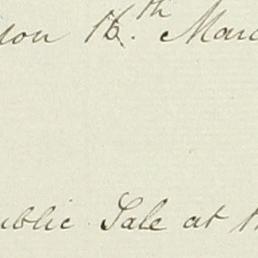 16th. Marc
ublic Sale at